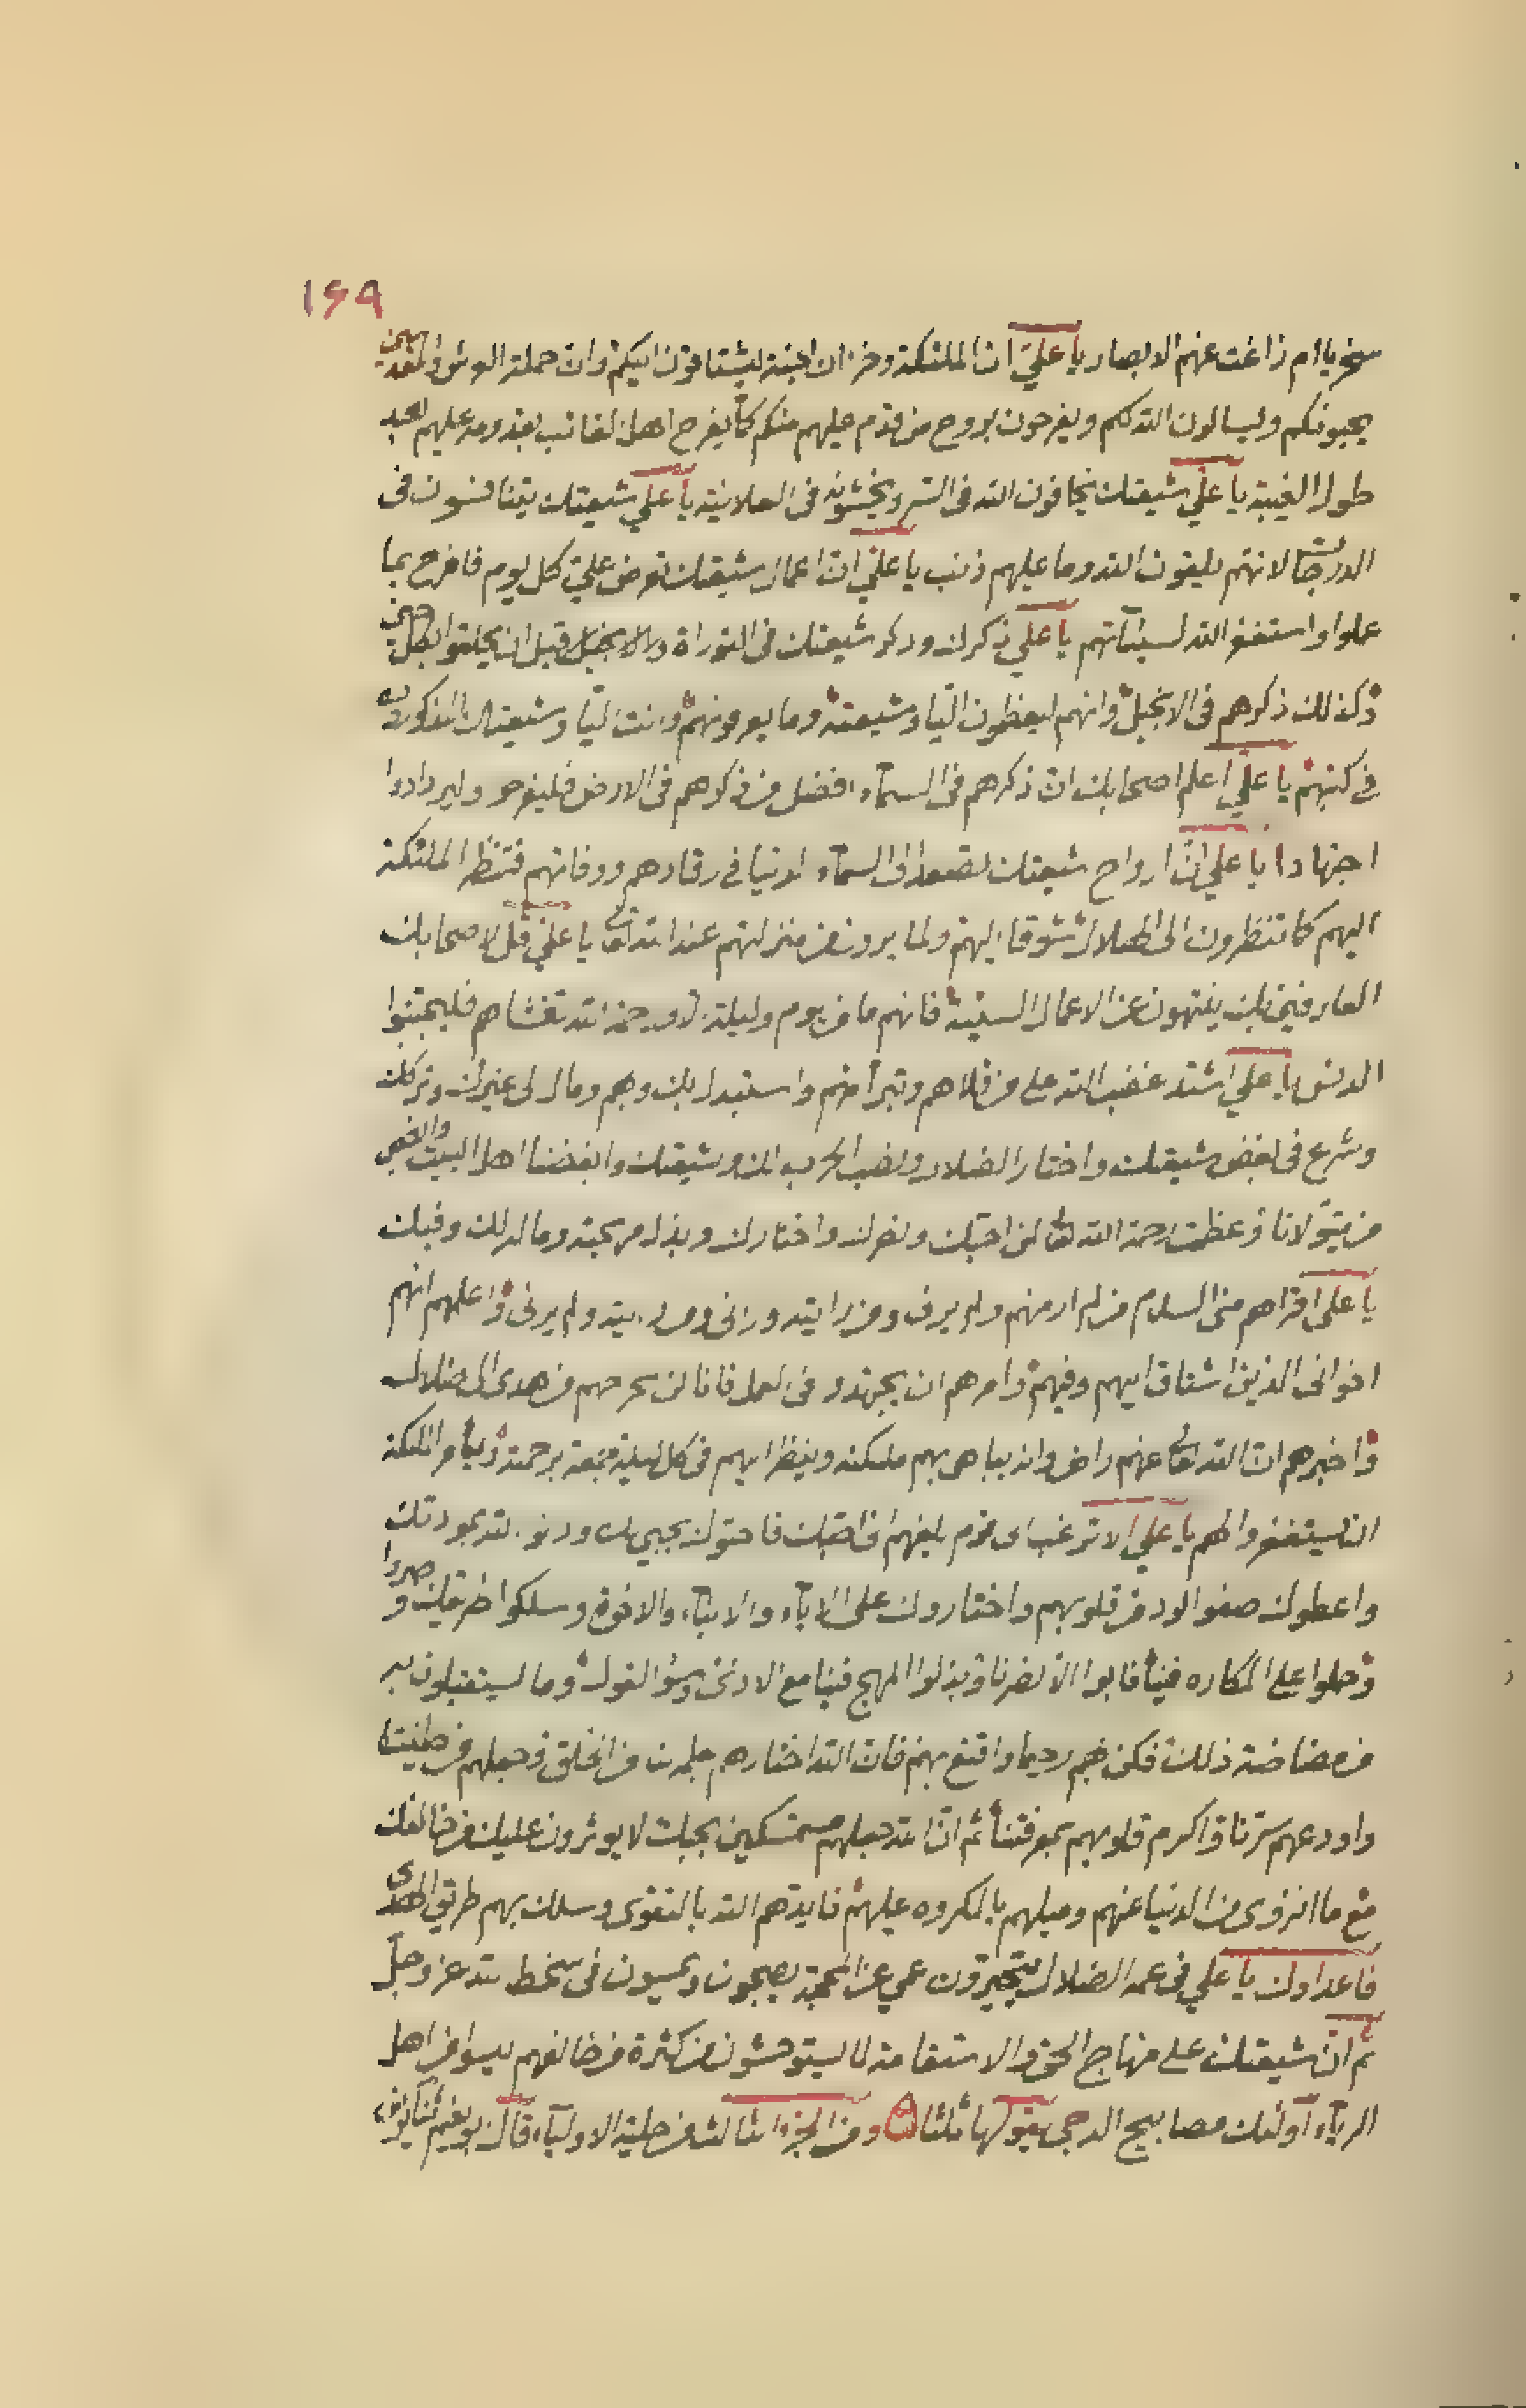 ١٤٩
سخريا ام زاغت عنهم الابصار يا علي ان الملئكة وخزان الجنة ليشتاقون اليكم وان حملة العرش والمقربين
يحبونكم وليسالون الله لكم ويفرحون بروح من قدم عليهم منكم كما يفرح اهل الغائب بقدومه عليهم بعد
طول الغيبة يا علي شيعتك يخافون الله فى السر ويخشونه فى العلانية يا علي شيعتك يتنافسون فى
الدرجات لانهم يلقون الله وما عليهم ذنب يا علي ان اعمال شيعتك تعرض علي كل يوم فافرح بما
عملوا واستغفر الله لسيئاتهم يا علي ذكرك وذكر شيعتك فى التوراة والانجيل قبل ان يخلقوا بكل خير
وكذلك ذكرهم فى الانجيل وانهم ليعظمون اليا وشيعته وما يعرفونهم وانت اليا وشيعتك المذكورون
فى كتبهم يا علي اعلم اصحابك ان ذكرهم فى السماء افضل من ذكرهم فى الارض فليفرحوا وليزدادوا
اجتهادا يا علي ان ارواح شيعتك لتصعد الى السماء الدنيا فى رقادهم ووفاتهم فتنظر الملئكة
اليهم كما تنظرون الى الهلال شوقا اليهم ولما يرون من منزلتهم عند الله تعالى يا علي قل لاصحابك
العارفين بك ينتهون عن الاعمال السيئة فانهم ما من يوم وليلة الا ورحمة الله تغشاهم فليجتنبوا
الدنس يا علي اشتد غضب الله على من قلاهم وتبرأ منهم واستبدل بك وبهم ومال الى غيرك وتركك
وشرع فى بغض شيعتك واختار الضلال ونصب الحرب لك ولشيعتك وابغضنا اهل البيت وابغض
من يتولانا وعظمت رحمة الله تعالى لمن احبك ونصرك واختارك وبذل مهجته وماله لك وفيك
يا علي اقرأهم منى السلام من لم ار منهم ولم يرنى ومن رايته ورانى ومن رايته ولم يرنى واعلمهم انهم
اخوانى الذين اشتاق اليهم وفيهم وامرهم ان يجتهدوا فى العمل فانا لن نخرجهم من هدى الى ضلال
واخبرهم ان الله تعالى عنهم راض وانه يباهى بهم ملئكته وينظر اليهم فى كل ليلة جمعة برحمة ويأمر الملئكة
ان يستغفروا لهم يا علي لا ترغب عن قوم بلغهم انى احبك فاحبوك بحبى لك ودنوا لله بمودتك
واعطوك صفو الود من قلوبهم واختاروك على الآباء والابناء والاخوة وسلكوا طريقك وصبروا
وحملوا على المكاره فينا فابوا الا نصرنا وبذلوا المهج فينا مع الاذى وسوء القول وما يستقبلون به
من مضاضة ذلك فكن بهم رحيما واقنع بهم فان الله اختارهم بعلمه من الخلق وجعلهم من طينتنا
واودعهم سرنا واكرم قلوبهم بمعرفتنا ثم ان الله جعلهم متمسكين بحبلك لا يوثرون عليك من خالفك
مع ما انزوى من الدنيا عنهم وميلهم بالمكروه عليهم فايدهم الله بالتقوى وسلك بهم طريق الهدى
فاعداوك يا علي فى عمه الضلال يتحيرون عمي عن المحجة يصبحون ويمسون فى سخط الله عز وجل
ثم ان شيعتك على منهاج الحق والاستقامة لا يستوحشون من كثرة من خالفهم ليسوا من اهل
الرياء اولئك مصابيح الدجى يقولها ثلثا ومن الجزء الثالث من حلية الاولياء قال ابو نعيم